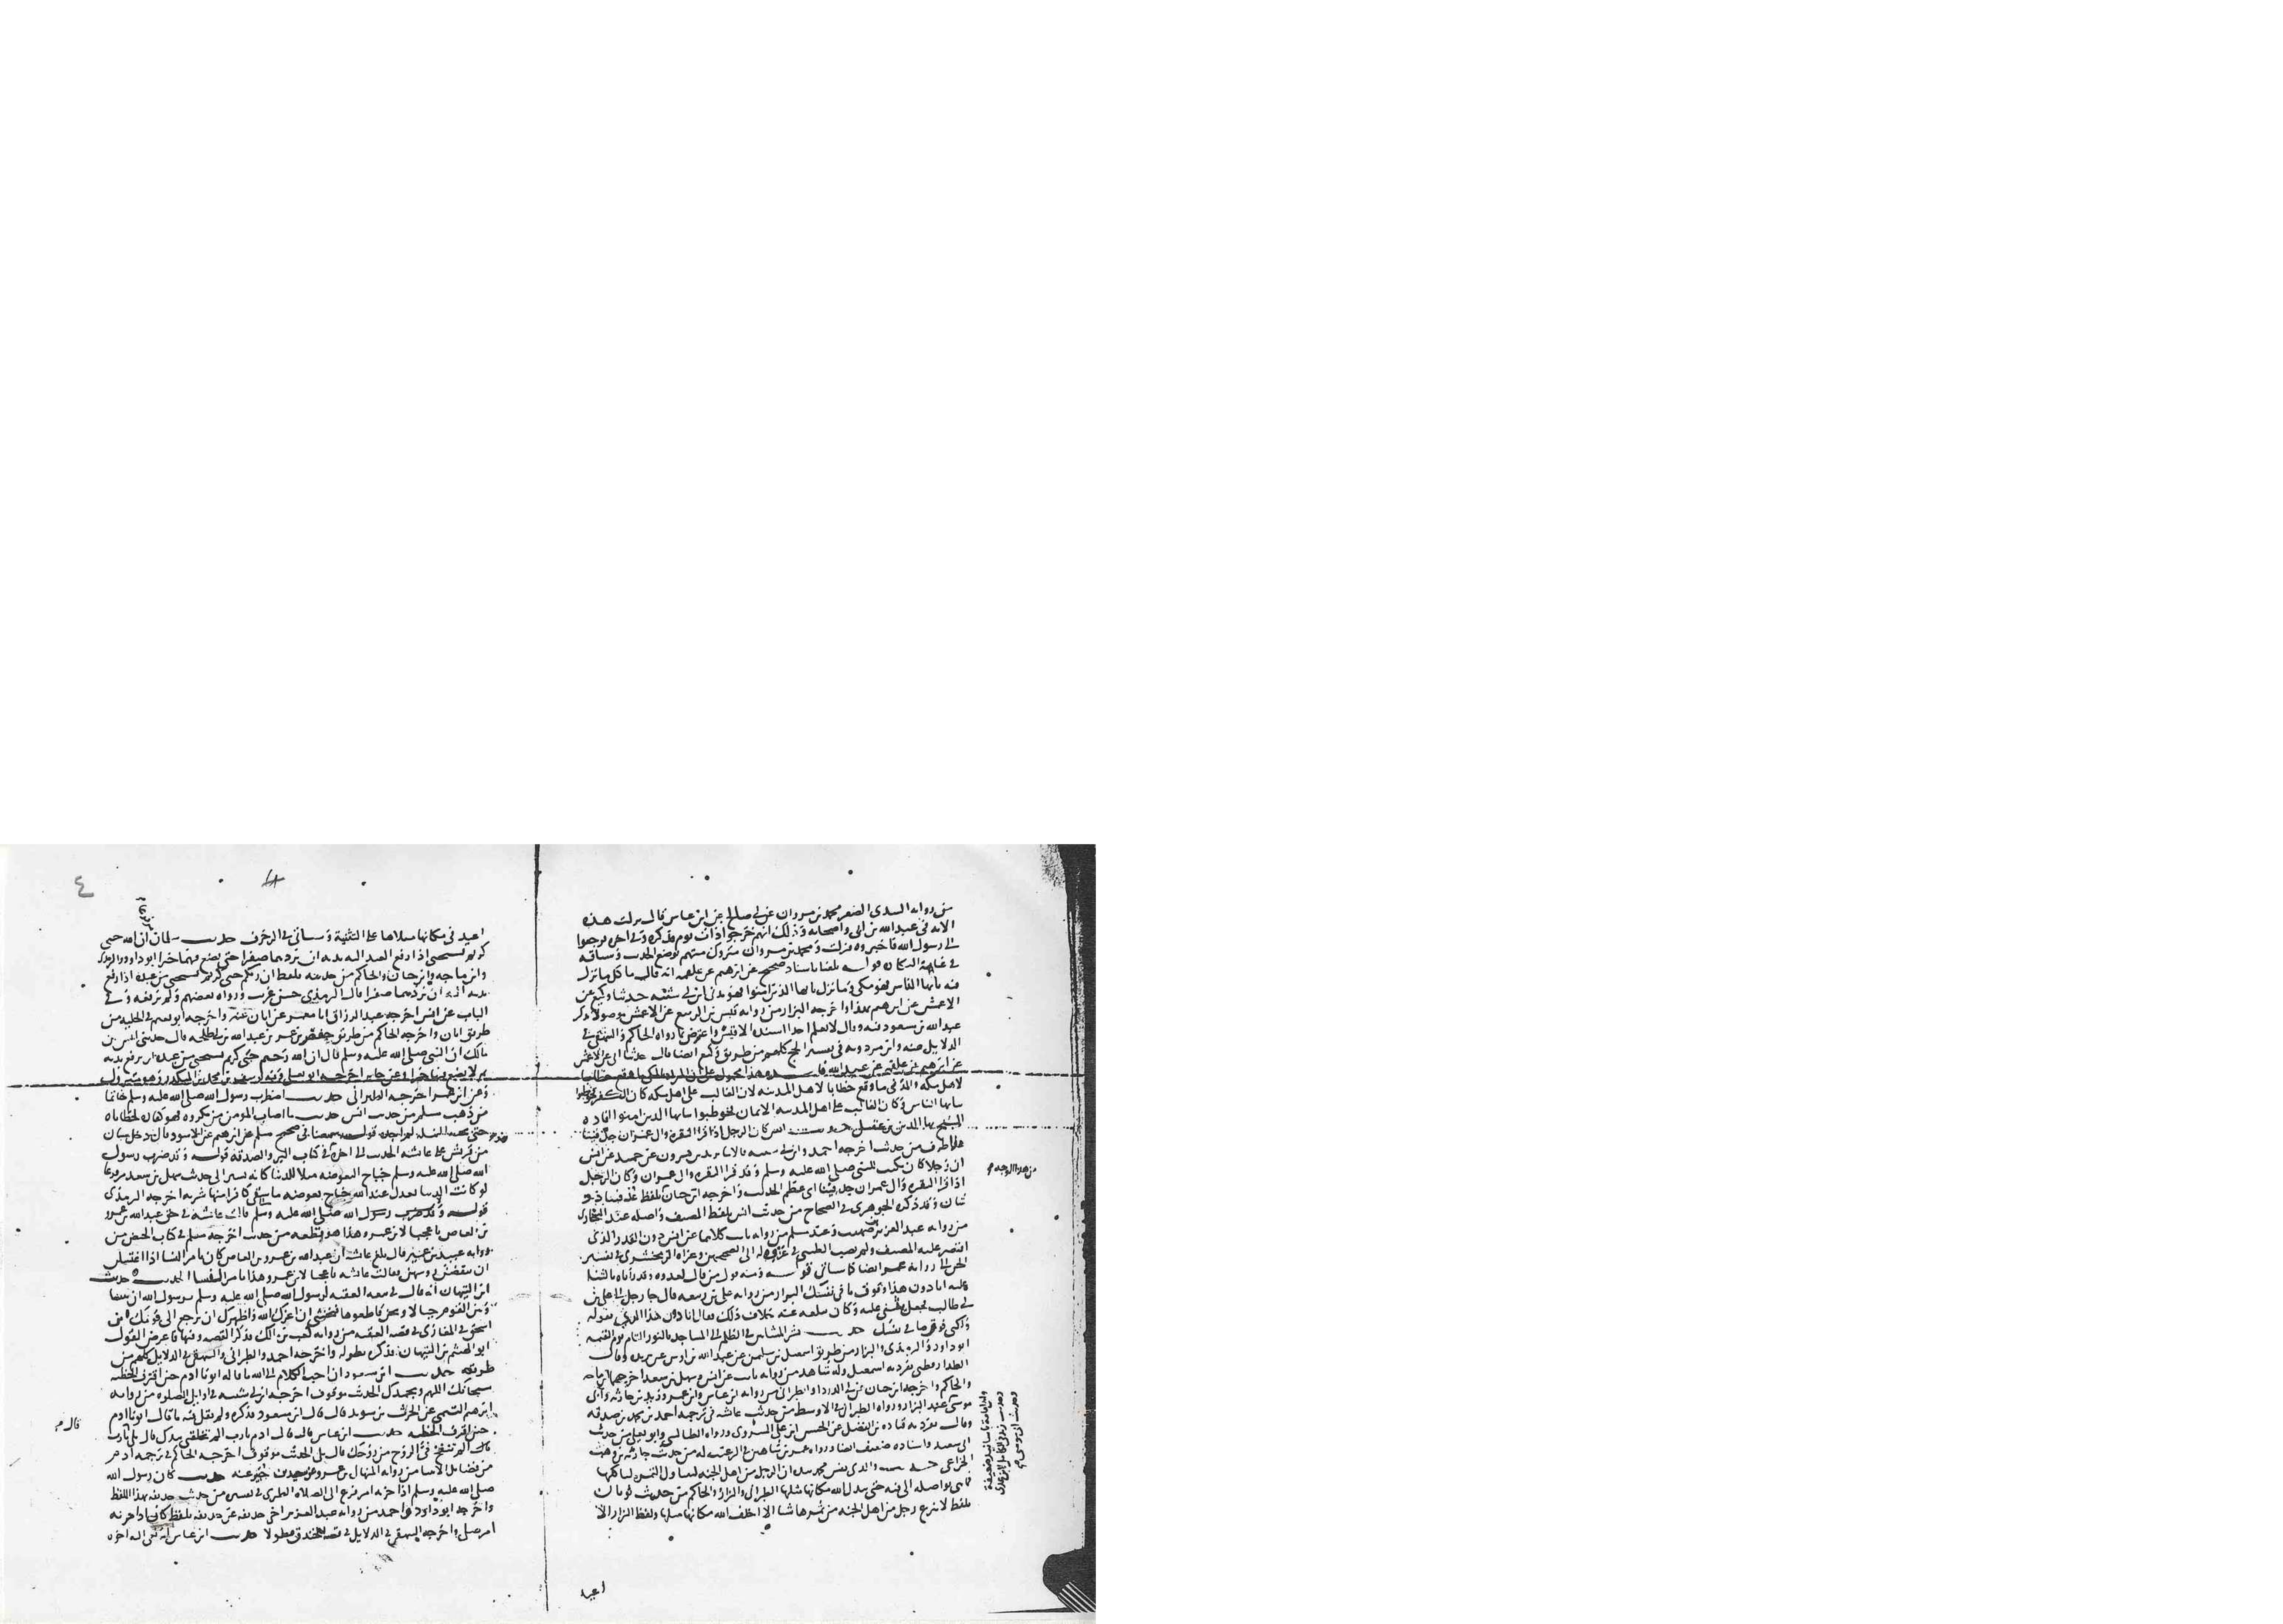 من رواية السدى الصغير محمد بن مروان عن ابى صالح عن ابن عباس قال نزلت هذه
الايه فى عبد الله بن ابى واصحابه وذلك انهم خرجوا ذات يوم فذكره وفى اخره فرجعوا
الى رسول الله فاخبروه فنزلت ومحمد بن مروان متروك متهم بوضع الحديث وسياقه
فى غاية النكاره قوله بلغنا باسناد صحيح عن ابرهيم عن علقمه انه قال ما كل ما نزل
فيه يايها الناس فهو مكى وما نزل يايها الذين امنوا فهو مدنى ابن ابى شيبه حدثنا وكيع عن
الاعمش عن ابرهيم بهذا واخرجه البزار من روايه قيس بن الربيع عن الاعمش موصولا بذكر
عبد الله بن مسعود فيه وقال لا نعلم احدا اسنده الا قيس واعترض بما رواه الحاكم والبيهقى فى
الدلايل عنه وابن مردويه فى تفسير الحج كلهم من طريق وكيع ايضا قال حدثنا ابى عن الاعمش
عن ابرهيم عن علقمه عن عبد الله هذا محمول على ان المراد بالمكى ما وقع خطابا
لاهل مكه والمدنى ما وقع خطابا لاهل المدينه لان الغالب على اهل مكه كان الكفر فخوطبوا
بيايها الناس وكان الغالب على اهل المدينه الايمان فخوطبوا بيايها الذين امنوا افاده
الشيخ بها الدين بن عقيل حديث انس كان الرجل اذا قرا البقره وال عمران جد فينا
هذا طرف من حديث اخرجه احمد وابن ابى شيبه قالا ثنا يزيد بن هرون عن حميد عن انس
ان رجلا كان يكتب للنبى صلى الله عليه وسلم وقد قرا البقره وال عمران وكان الرجل
اذا قرا البقره وال عمران جد فينا اى عظم الحديث واخرجه ابن حبان بلفظ عد فينا ذو
شان وقد ذكره الجوهرى فى الصحاح من حديث انس بلفظ المصنف واصله عند البخارى
من روايه عبد العزيز بن صهيب وعند مسلم من روايه ثابت كلاهما عن انس دون القدر الذى
اقتصر عليه المصنف ولم يصب الطيبى فى عزوه له الى الصحيحين وعزاه الزمخشرى فى تفسير
الجن الى روايه عمر ايضا كما سياتى قوله ومنه قول من قال لعدوه وقد راه بالثنا
عليه انا دون هذا وفوق ما فى نفسك البزار من روايه على بن ربيعه قال جا رجل الى على بن
ابى طالب فجعل يثنى عليه وكان بلغه عنه خلاف ذلك فقال انا دون هذا الذى تقوله
ولكنى فوق ما فى نفسك حديث بشر المشاين فى الظلم الى المساجد بالنور التام يوم القيمه
ابو داود والترمذى والبزار من طريق اسمعيل بن سليمن عن عبد الله بن اوس عن بريده وقال
الدارقطنى تفرد به اسمعيل وله شاهد من روايه ثابت عن انس وسهل بن سعد اخرجهما ابن ماجه
والحاكم واخرجه ابن حبان عن ابى الدردا والطبرانى من روايه ابن عباس وابن عمر وزيد بن حارثه وابى
موسى عند البزار ورواه الطبرانى فى الاوسط من حديث عايشه فى ترجمه احمد بن محمد بن صدقه
وقال تفرد به قتاده بن الفضل عن الحسن بن على السروى ورواه الطيالسى وابو يعلى من حديث
ابى سعيد واسناده ضعيف ايضا ورواه عمر بن شاهين فى الترغيب له من حديث حارثه بن وهب
الخزاعى حديث والذى نفس محمد بيده ان الرجل من اهل الجنه ليتناول الثمره لياكلها
فما هى بواصله الى فيه حتى يبدل الله مكانها مثلها الطبرانى والبزار والحاكم من حديث ثوبان
بلفظ لا ينزع رجل من اهل الجنه من ثمرها شيا الا اخلف الله مكانها مثلها ولفظ البزار الا
اعيد
٤
اعيد فى مكانها مثلاها على التثنية وسياتى فى الزخرف حديث سلمان ان الله حيى
كريم يستحيى اذا رفع العبد اليه يديه ان يردهما صفرا حتى يضع فيهما خيرا ابو داود والترمذى
وابن ماجه وابن حبان والحاكم من حديثه بلفظ ان ربكم حيى كريم يستحيى من عبده اذا رفع
يديه اليه ان يردهما صفرا قال الترمذى حسن غريب ورواه بعضهم ولم يرفعه وفى
الباب عن انس اخرجه عبد الرزاق انا معمر عن ابان عنه واخرجه ابو نعيم فى الحليه من
طريق ابان واخرجه الحاكم من طريق حفص بن عمر بن عبد الله بن ابى طلحه قال حدثنى انس بن
مالك ان النبى صلى الله عليه وسلم قال ان الله رحيم حيى كريم يستحيى من عبده ان يرفع يديه
ثم لا يضع فيهما خيرا وعن جابر اخرجه ابو يعلى وفيه يوسف بن محمد بن المنكدر وهو متروك
وعن ابن عمر اخرجه الطبرانى حديث اضطرب رسول الله صلى الله عليه وسلم خاتما
من ذهب مسلم من حديث انس حديث ما اصاب المومن من مكروه فهو كفاره لخطاياه
حتى نخبه النمله لم اجده قوله سمعنا فى صحيح مسلم عن ابرهيم عن الاسود قال دخل شبان
من قريش على عايشه الحديث الى اخره فى كتاب البر والصدقه قوله وقد ضرب رسول
الله صلى الله عليه وسلم جناح البعوضه مثلا للدنيا كانه يشير الى حديث سهل بن سعد مرفوعا
لو كانت الدنيا تعدل عند الله جناح بعوضه ما سقى كافرا منها شربه اخرجه الترمذى
قوله وقد ضرب رسول الله صلى الله عليه وسلم قالت عايشه فى حق عبد الله بن عمرو
بن العاص يا عجبا لابن عمرو هذا هو قطعه من حديث اخرجه مسلم فى كتاب الحيض من
روايه عبيد بن عمير قال بلغ عايشه ان عبد الله بن عمرو بن العاص كان يامر النسا اذا اغتسلن
ان ينقضن روسهن فقالت عايشه يا عجبا لابن عمرو هذا يامر النسا الحديث حديث
ابن التيهان انه قال فى بيعه العقبه لرسول الله صلى الله عليه وسلم يرسول الله ان بيننا
وبين القوم حبالا ونحن قاطعوها فنخشى ان اعزك الله واظهرك ان ترجع الى قومك ابن
اسحق فى المغازى فى قصه العقبه من روايه كعب بن مالك فذكر القصه وفيها فاعرض القول
ابو الهيثم بن التيهان فذكره بطوله واخرجه احمد والطبرانى والبيهقى فى الدلايل كلهم من
طريقه حديث ابن مسعود ان احب الكلام الى الله ما قاله ابونا ادم حين اقترف الخطيئه
سبحانك اللهم وبحمدك الحديث موقوف اخرجه ابن ابى شيبه فى اوايل الصلوه من روايه
ابرهيم التيمى عن الحرث بن سويد قال قال ابن مسعود فذكره ولم يقل فيه ما قال ابونا ادم
حين اقترف الخطيئه حديث ابن عباس قال قال ادم يارب الم تخلقنى بيدك قال بلى يارب
قال الم تنفخ فى الروح من روحك قال بلى الحديث موقوف اخرجه الحاكم فى ترجمه ادم
من فضايل الانبيا من روايه المنهال بن عمرو عن سعيد بن جبير عنه حديث كان رسول الله
صلى الله عليه وسلم اذا حزبه امر فزع الى الصلاه الطبرى فى تفسيره من حديث حذيفه بهذا اللفظ
واخرجه ابو داود واحمد من روايه عبد العزيز اخى حذيفه عن حذيفه بلفظ كان اذا حزبه
امر صلى واخرجه البيهقى فى الدلايل فى قصه الخندق مطولا حديث ابن عباس انه نعى اليه اخوه
قال م